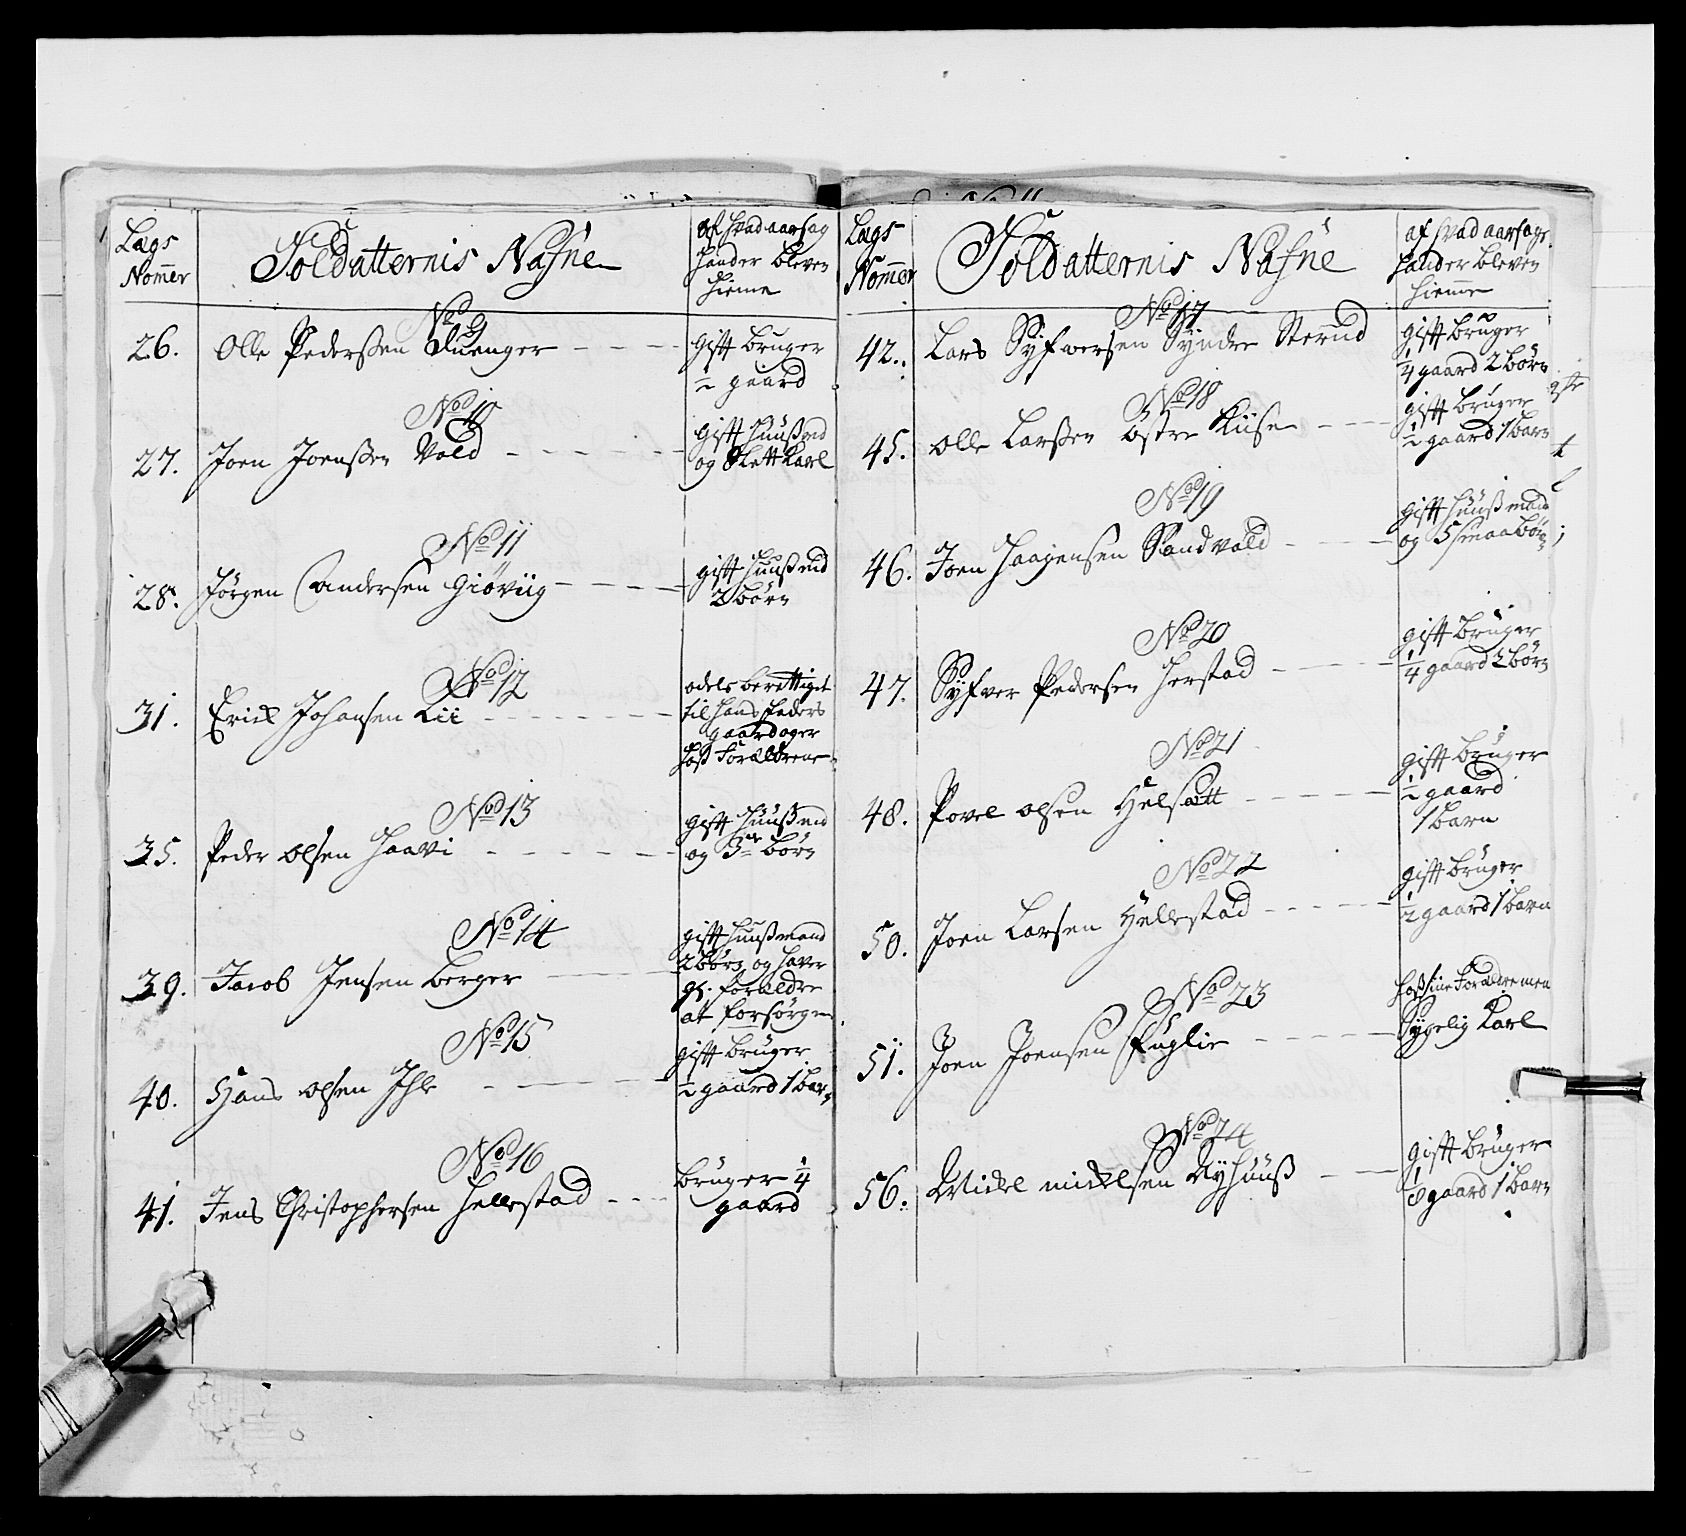 Lægs Nomer
Soldatternis Nafne
af hvad aarsag
hand er bleven
hieme
No 9
26. Olle Pederssen Quenger
gift bruger
1/2 gaard
No 10
27. Joen Joenssen Vold
gift Huussmd
og Slett Karl
No 11
28. Jørgen Andersen Giøviig
gift Huussmd
2 børn
No 12
31. Erick Johansen Lii
odels berettiget
til hans faders
gaard og er
hoss Foreldrene
No 13
35. Peder olsen Haavi
gift Huussmd
og 3de børn
No 14
39. Jacob Jensen berger
gift Huussmand
2 børn og haver
gl. foreldre
at forsørge
No 15
40. Hans olsen Ihle
gift bruger
1/2 gaard 1 barn
No 16
41. Jens Christophersen Hellestad
bruger 1/4
gaard
Lægs Nomer
Soldatternis Nafne
af hvad aarsage
hand er bleven
hiemme
No 17
42. Lars Syfwersen Syndre Sterud
gift bruger
1/4 gaard 2 børn
No 18
45. Olle Larssen østre Kiise
gift bruger
1/2 gaard 1 barn
No 19
46. Joen Haagensen Sandvold
gift Huussmand
og 5 smaa børn
No 20
47. Syfver Pedersen Herstad
gift bruger
1/4 gaard 2 børn
No 21
48. Povel olsen Helsætt
gift bruger
1/2 gaard
1 barn
No 22
50. Joen Larsen Hellestad
gift bruger
1/2 gaard 1 barn
No 23
51. Joen Joensen Fuglie
hoss sine Foreldre men
Sygelig Karl
No 24
56. Mickel mickelsen Nyhuuss
gift bruger
1/8 gaard 1 barn